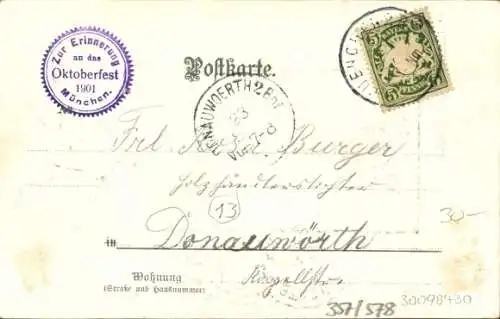 Zur Erinnerung
an das
Oktoberfest
1901
München.
Postkarte.
5
5
5
DONAUWOERTH 2
23
7-8
Frl. Burger
Holzhändlerstochter
13
in Donauwörth
30-
Wohnung
(Straße und Hausnummer)
Kapellstr.
357/578
30098430